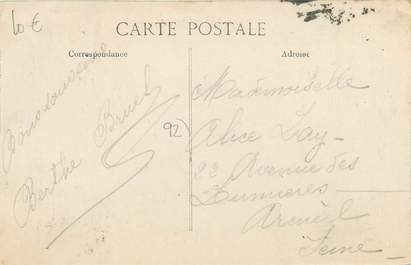 10€
CARTE POSTALE
Correspondance
Adresse
Berthe Bruel
92
Mademoiselle
Alice Lay
22 Avenue des
Lumières
Arcueil
Seine